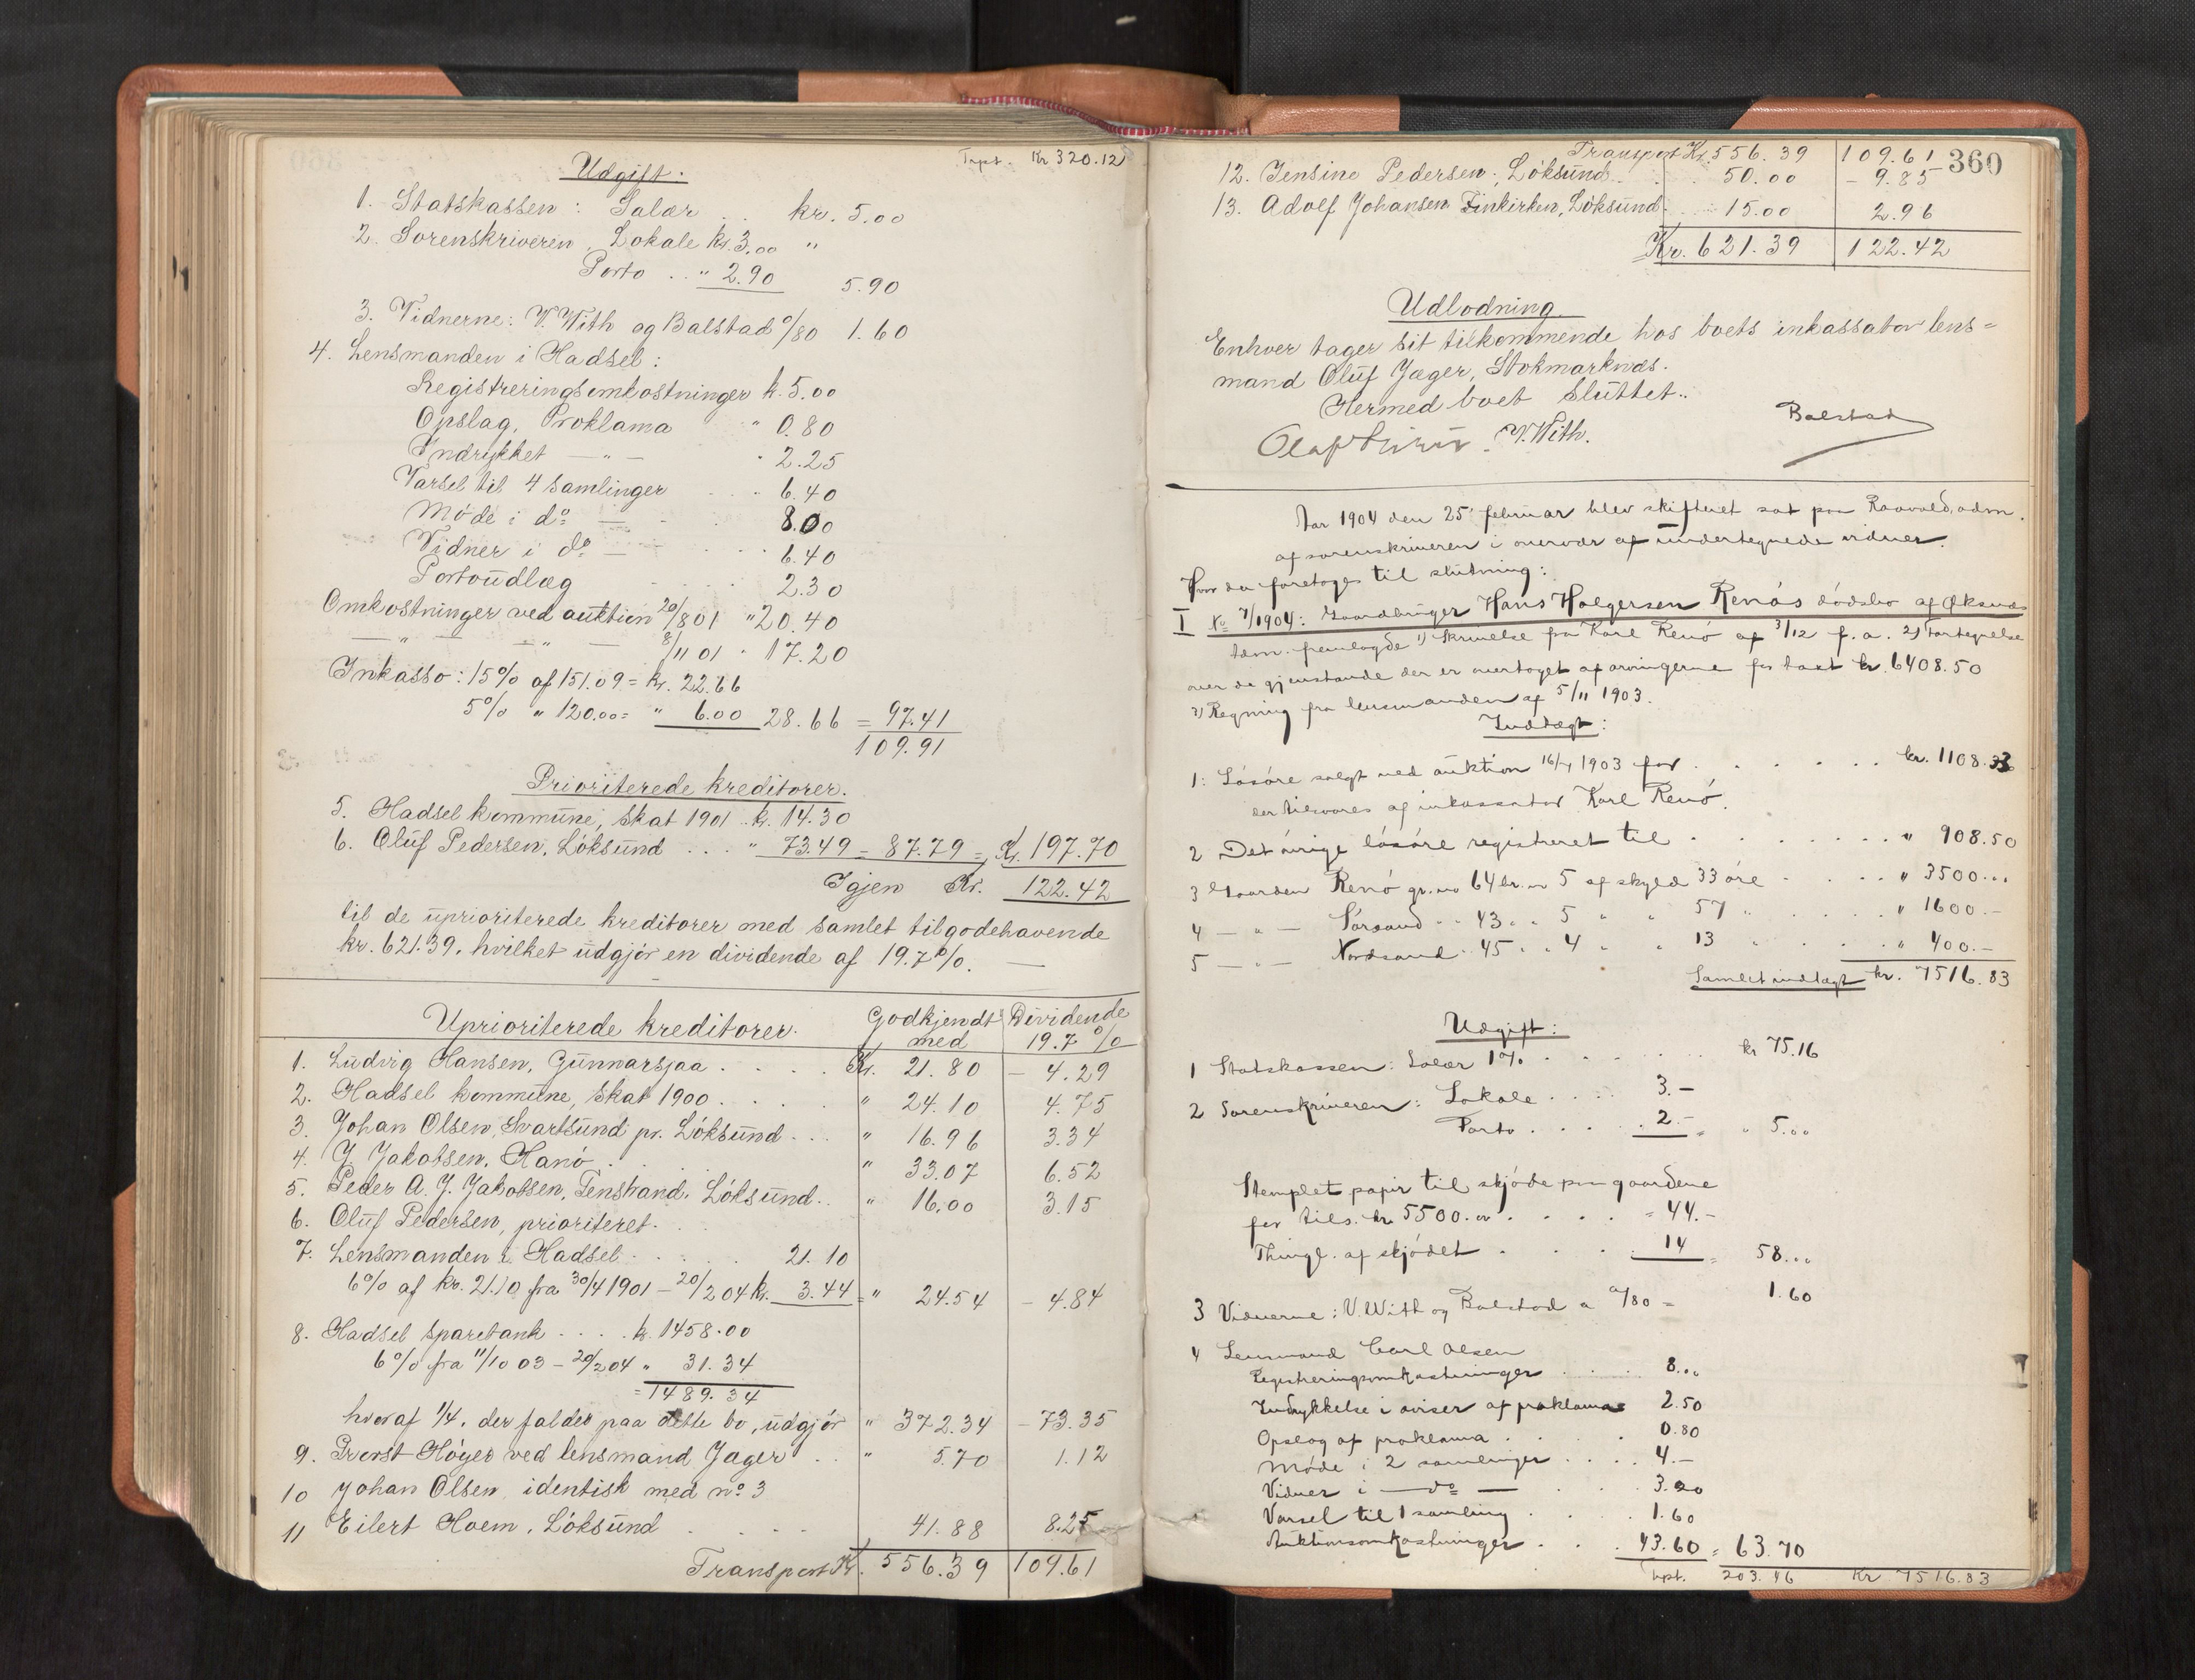 Trpt. Kr 320.12
Udgift.
1. Statskassen: Salær .. kr. 5.00
2. Sorenskriveren, Lokale kr. 3.00 "
Porto .. " 2.90 5.90
3. Vidnerne: V. With og Balstad a/80 1.60
4. Lensmanden i Hadsel:
Registreringsomkostninger k. 5.00
Opslag, Proklama " 0.80
Indrykket — " — " 2.25
Varsel til 4 samlinger 6.40
Møde i do 8.00
Vidner i do 6.40
Portoudlæg 2.30
Omkostninger ved auktion 20/8 01 " 20.40
— " — " — 8/11 01 " 17.20
Inkasso: 15% af 151.09 = kr. 22.66
5% " 120.00 = " 6.00 28.66 = 97.41
109.91
Prioriterede kreditorer.
5. Hadsel kommune, skat 1901 .. k. 14.30
6. Oluf Pedersen, Løksund ... " 73.49 = 87.79 = Kr. 197.70
Igjen Kr. 122.42
til de uprioriterede kreditorer med samlet tilgodehavende
kr. 621.39, hvilket udgjør en dividende af 19.7%. —
Uprioriterede kreditorer. Godkjendt med Dividende 19.7%
1. Ludvig Hansen, Gunnarsjaa .... Kr. 21.80 — 4.29
2. Hadsel kommune, skat 1900 .... " 24.10 4.75
3. Johan Olsen, Svartsund pr. Løksund ... " 16.96 3.34
4. J. Jakobsen, Hanø .. " 33.07 6.52
5. Peder A. J. Jakobsen, Løksund .. " 16.00 3.15
6. Oluf Pedersen, prioriteret.
7. Lensmanden i Hadsel .... 21.10
6% af kr. 21.10 fra 30/4 1901 – 20/2 04 k. 3.44 = " 24.54 — 4.84
8. Hadsel sparebank .... k. 1458.00
6% fra 11/10 03 – 20/2 04 " 31.34
= 1489.34
hvoraf 1/4, der falder paa dette bo, udgjør " 372.34 — 73.35
9. Provst Høyer ved lensmand Jæger .. " 5.70 1.12
10 Johan Olsen identisk med no 3
11 Eilert Hoem, Løksund .... 41.88 8.25
Transport Kr. 556.39 109.61
360
Transport Kr. 556.39 109.61
12. Jensine Pedersen, Løksund .. 50.00 – 9.85
13. Adolf Johansen Finkirken, Løksund .. 15.00 2.96
Kr. 621.39 122.42
Udlodning.
Enhver tager sit tilkommende hos boets inkassator lens=
mand Oluf Jæger, Stokmarknæs.
Hermed boet sluttet..
V. With. Balstad
Aar 1904 den 25 februar blev skifteret sat paa Raavold, adm.
af sorenskriveren i overvær af undertegnede vidner.
Hvor da foretoges til slutning:
I No 7/1904: Gaardbruger Hans Holgersen Renøs dødsbo af Øksnes
Adm. fremlagde 1) Skrivelse fra Karl Renø af 3/12 f.a. 2) Fortegnelse
over de gjenstande der er overtaget af arvingerne for takst kr. 6408.50
3) Regning fra lensmanden af 5/11 1903.
Indtægt:
1: Løsøre solgt ved auktion 16/4 1903 for ...... kr. 1108.33
der tilsvares af inkassator Karl Renø.
2 Det øvrige løsøre registreret til ....... " 908.50
3 Gaarden Renø gr. no 64 br. no 5 af skyld 33 øre .... " 3500...
4 — " — Sørsand " " 43 " " 5 " " 57 " .... " 1600.—
5 — " — Nordsand " 45 " " 4 " " 13 " .... " 400.—
Samlet indtægt kr. 7516.83
Udgift:
1 Statskassen: Salær 1% ...... kr 75.16
2 Sorenskriveren: Lokale .... 3.—
Porto .... 2.— = " 5...
Stemplet papir til skjøde paa gaardene
for tils. kr 5500.00 .... = 44.—
Thingl. af skjødet .... 14 = 58...
3 Vidnerne: V. With og Balstad a a/80 = 1.60
4 Lensmand Carl Olsen
Registreringsomkostninger .... 8...
Indrykkelse i aviser af proklama 2.50
Opslag af proklama .... 0.80
Møde i 2 samlinger .... 4.—
Vidner i — do — .... 3.20
Varsel til 1 samling .... 1.60
Auktionsomkostninger .... 43.60 = 63.70
trpt. 203.46 Kr 7516.83